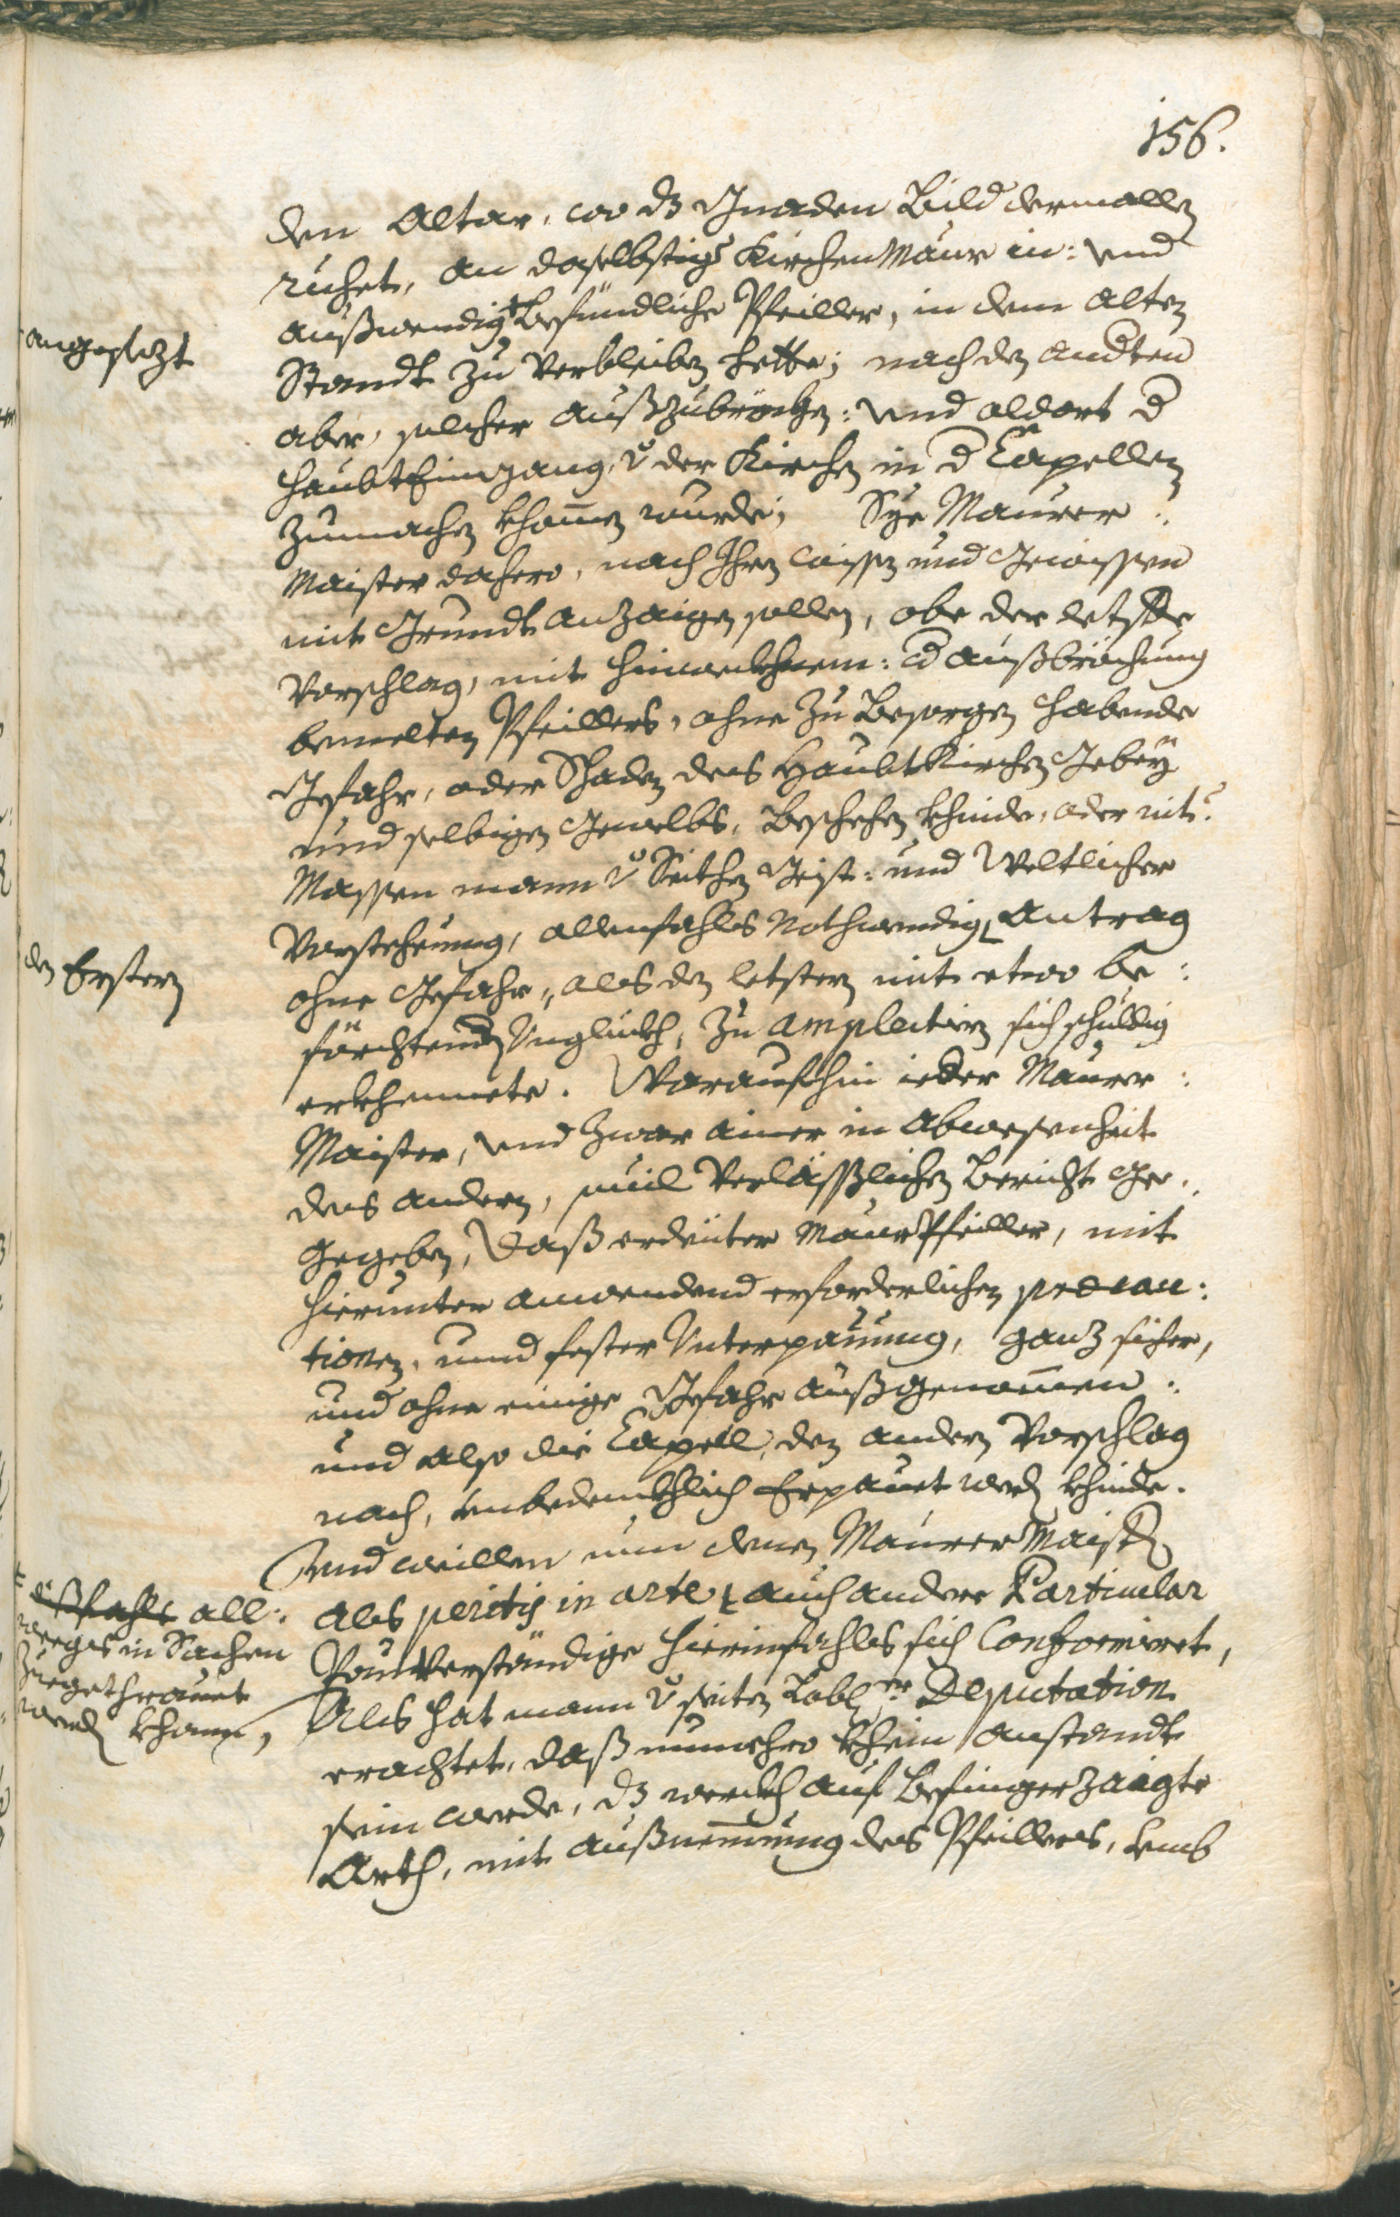 156.
den Altar, wo dz Gnaden Bild dermallen
ruhet, an daselbstiger KirchenMaur in: und
außwendig befündliche Pfeiller, in dem alten
angesezt
Standt zu verbleiben hette; nach den andten
aber, solcher außzubröchen: und aldort d
haubt Eingang, v der Kirchen in d Capellen
zumachen khomen wurde; Sye Maurer
Maister dahero, nach Ihren wissen und Gewissen
mit Grundt anzaigen sollen, obe der letste
Vorschlag, mit hinwekhnem: d außbröchung
bemelten Pfeillers, ohne zu besorgen habende
Gefahr, oder Schaden des HaubtKirchen Gebey
und selbigen Gewelbs, beschehen khinde, oder nit?
Massen mann v Seithen Geist: und Weltlicher
Vorstehung, allenfahls nothwendig Antrag
den Erstern
ohne Gefahr, als den letstern mit etwo be:
förchtendten Unglückh, zu amplectirn sich schuldig
erkhennete. Woraufhin ieder Maurer:
Maister, und zwar ainer in abwesenheit
des andern, souil verlässlichen bericht ge:
gegeben, daß erdeuter MaurPfeiller, mit
hierunter anwendend erforderlichen precau:
tionen, unnd fester Unterpauung, ganz sicher,
und ohne einige Gefahr außgenommen:
und also die Capell, den andern Vorschlag
nach, unbedenkhlich Erpauet werden khinde.
Und weillen nun denen MaurerMaistern
als peritis in arte, auch andere Particular
dißfahls all:
weegs in Sachen
zuegethrauet
werden khann,
Pauverständige hierinfahls sich Conformiret,
Als hat mann v seiten Löbl. er Deputation
erachtet, daß nunmehro khein anstandt
sein werde, dz werckh auf befingerzaigte
Arth, mit außnemmung des Pfeillers, umb